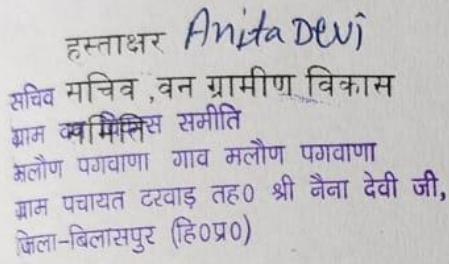 हस्ताक्षर Anita Devi
सचिव मचिव ,वन ग्रामीण विकास
ग्राम समिति समीति
मलौण पगवाणा गाव मलौण पगवाणा
ग्राम पचायत टरवाड़ तह० श्री नैना देवी जी,
जिला-बिलासपुर (हि०प्र०)